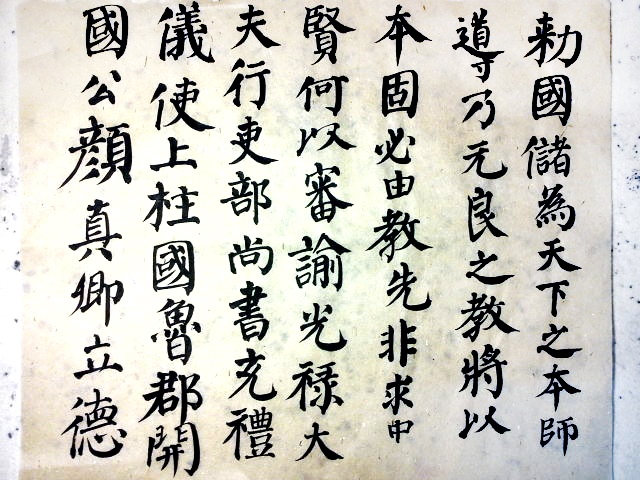 勅國儲為天下之本師
導乃元良之教將以
本固必由教先非求中
賢何以審諭光禄大
夫行吏部尚書充禮
儀使上柱國魯郡開
國公顔真卿立德